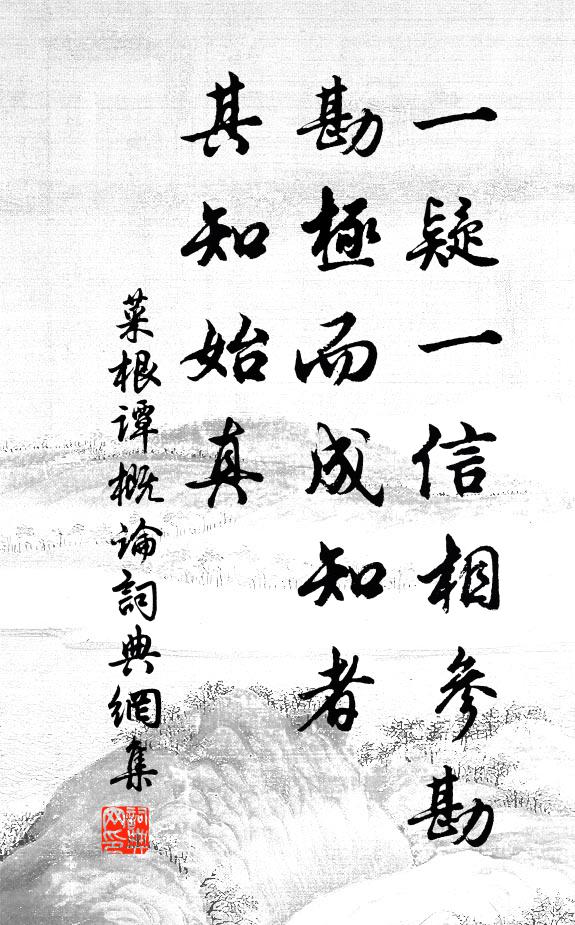 一疑一信相參勘
勘極而成知者
其知始真
菜根譚概論詞典網集